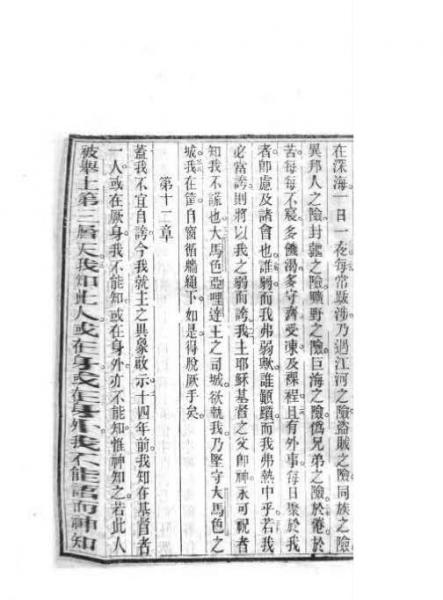 在深海一日一夜每常跋涉乃遇江河之險盜賊之險同族之險
異邦人之險封疆之險曠野之險巨海之險僞兄弟之險於儘於
苦每每不寢多饑渴多守齋受凍及裸裎且有外事每日聚於我
者即慮及諸會也誰弱而我弗弱歟誰顛躓而我弗熱中乎若我
必當誇則將以我之弱而誇我主耶穌基督之父即神永可祝者
知我不謊也大馬色亞哩達王之司城欲執我乃堅守大馬色之
城我在筐自窗循牆縋下如是得脫厥手矣
第十二章
蓋我不宜自誇今我就主之異象啟示十四年前我知在基督者
一人或在厥身我不能知或在身外亦不能知惟神知之若此人
被舉上第三層天我知此人或在身或在身外我不能語而神知